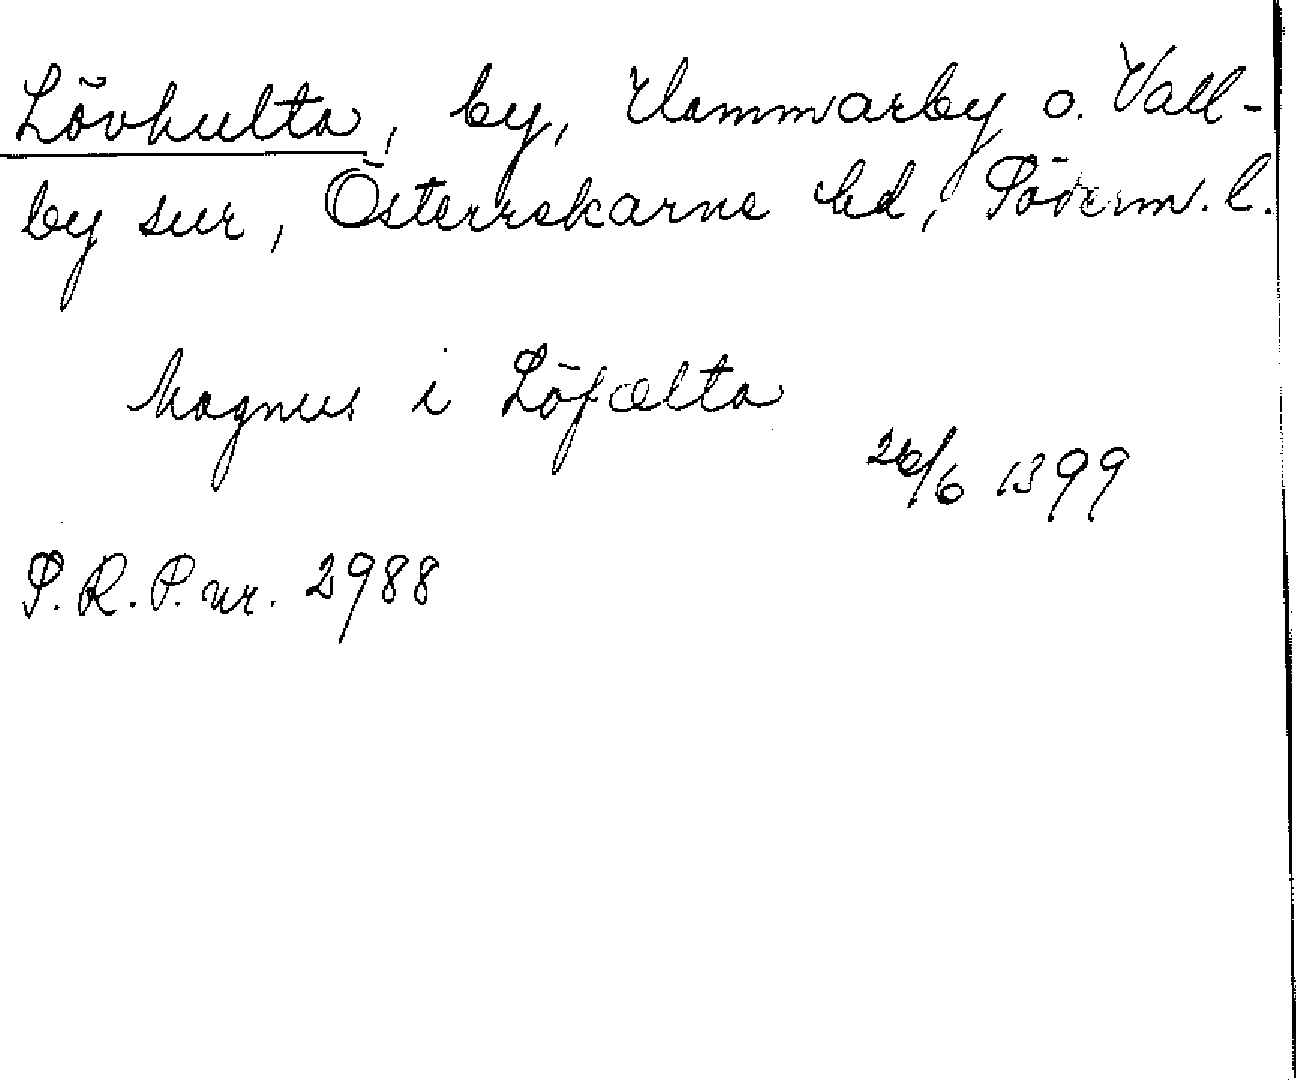 Lövhulta, by, Hammarby o. Vall-
by snr, Österrekarne hd, Söderm. l.
Magnus i Löfælta
26/6 1399
S. R. P. nr. 2988